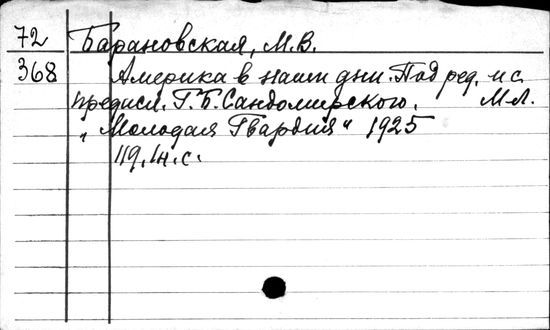 72 Барановская, М.В.
368 Америка в наши дни. Под ред. и с
предисл. Г.Б. Сандомирского. М-Л.
"Молодая Гвардия" 1925
119, 1н.с.